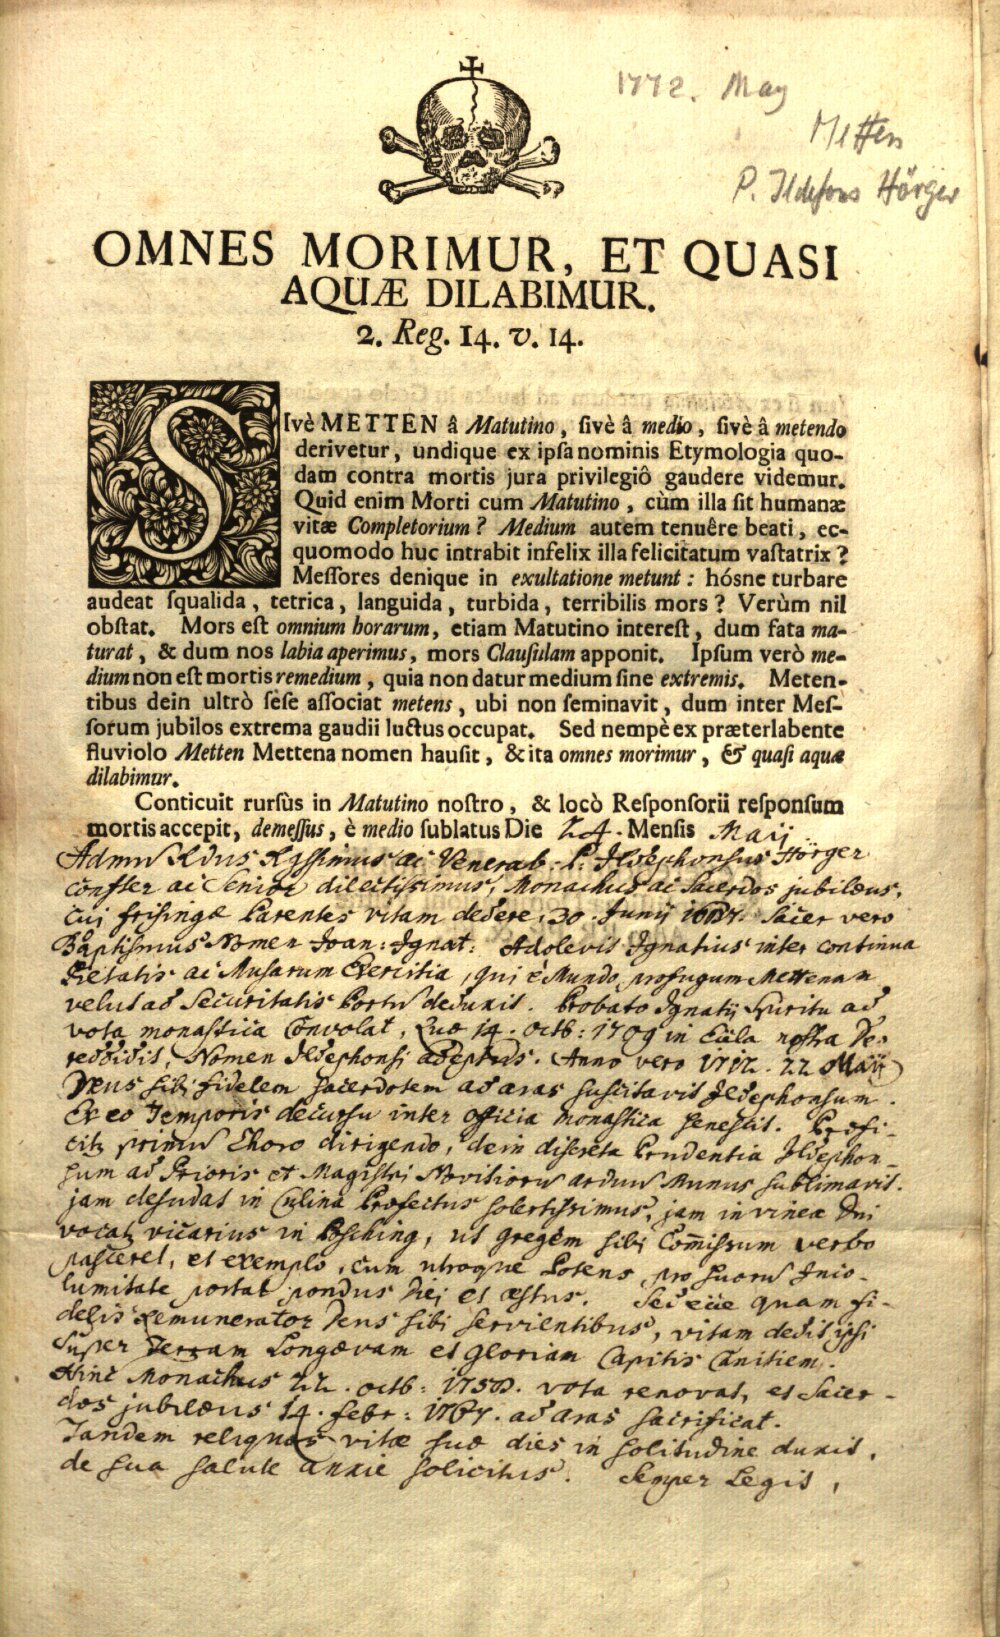 1772. May
Metten
P. Ildefons Hörger
OMNES MORIMUR, ET QUASI
AQUÆ DILABIMUR.
2. Reg. 14. v. 14.
SIvè METTEN â Matutino, ſivè â medio, ſivè â metendo
derivetur, undique ex ipſa nominis Etymologia quo-
dam contra mortis jura privilegiô gaudere videmur.
Quid enim Morti cum Matutino, cùm illa ſit humanæ
vitæ Completorium? Medium autem tenuêre beati, ec-
quomodo huc intrabit infelix illa felicitatum vaſtatrix?
Meſſores denique in exultatione metunt: hósne turbare
audeat ſqualida, tetrica, languida, turbida, terribilis mors? Verùm nil
obſtat. Mors eſt omnium horarum, etiam Matutino intereſt, dum fata ma-
turat, & dum nos labia aperimus, mors Clauſulam apponit. Ipſum verò me-
dium non eſt mortis remedium, quia non datur medium ſine extremis. Meten-
tibus dein ultrò ſeſe aſſociat metens, ubi non ſeminavit, dum inter Meſ-
ſorum jubilos extrema gaudii luctus occupat. Sed nempè ex præterlabente
fluviolo Metten Mettena nomen hauſit, & ita omnes morimur, & quaſi aquæ
dilabimur.
Conticuit rursùs in Matutino noſtro, & locò Reſponſorii reſponſum
mortis accepit, demeſſus, è medio ſublatus Die 24. Mensis Maij.
Rdus Rgssimus ac Venerab. P. Ildephonsus Hörger
ac Senior dilectissimus, Monachus ac Sacerdos jubilæus,
cui frisingæ Parentes vitam dedere, 30. Junij Sacer vero
Baptismus Nomen Joan: Ignat: Adolevit Ignatius inter continua
Pietatis ac Musarum Exercitia, qui è Mundo profugum Mettenam
velut ad Securitatis Portu deduxit. Probato Ignatij Spiritu ad
vota monastica Convolat, quæ 14. octb: 1709 in Eccla nostra Deo
reddidit, Nomen Ildephonsi adeptus. Anno vero 1712. 22 Maij
Deus sibi fidelem sacerdotem ad aras suscitavit Ildephonsum.
Ex eo Temporis decursu inter officia monastica senescit. Præfi-
citur primu Choro dirigendo, dein discreta Prudentia Ildephon-
sum ad Prioris et Magistri Novitioru arduu Munus sublimavit.
jam desudat in Culina Præfectus solertissimus, jam in vinea Dni
vocatur vicarius in Posching, ut gregem sibi Commissum verbo
pasceret, et exemplo, cum utroque Potens pro suoru Inco-
lumitate portat pondus diei et æstus. Sed ecce quam fi-
delis Remunerator Deus sibi servientibus, vitam dedit ipsi
super Terram Longævam et Gloriam Capitis Canitiem.
Hinc Monachus 22. octb: vota renovat, et Sacer-
dos jubilæus 14. febr: ad aras sacrificat.
Tandem reliquos vitæ suæ dies in solitudine duxit,
de sua salute anxie solicitus. Semper Legit,